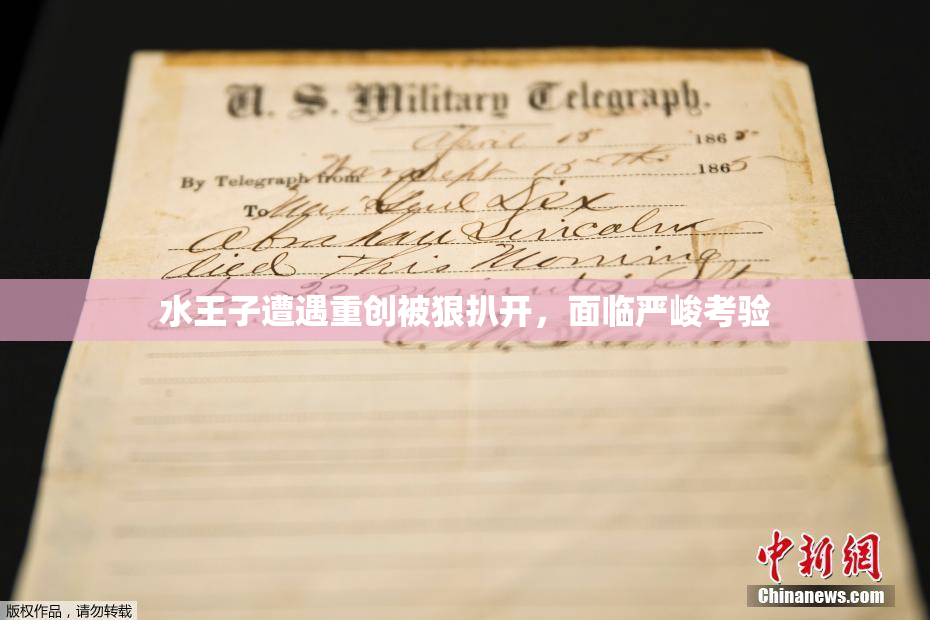 U. S. Military Telegraph.
April 15 1865
By Telegraph from War Dept 15th 1865
To Maj Genl Dix
Abraham Lincoln
died This Morning
at 22 minutes after
水王子遭遇重创被狠扒开，面临严峻考验
E. M. Stanton
中新网
Chinanews.com
版权作品，请勿转载